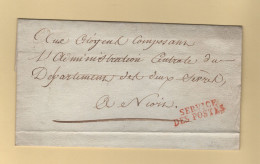 Aux Citoyens Composant
L'Administration Centrale du
Département des deux Sèvres
A Niort
SERVICE
DES POSTES